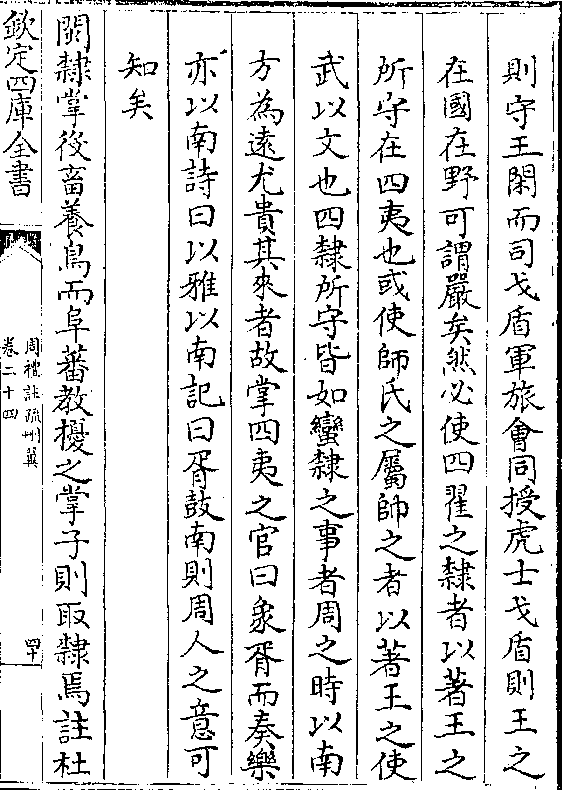 則守王閑而司戈盾軍旅會同授虎士戈盾則王之
在國在野可謂嚴矣然必使四翟之隸者以著王之
所守在四夷也或使師氏之屬帥之者以著王之使
武以文也四隸所守皆如蠻隸之事者周之時以南
方為遠尤貴其來者故掌四夷之官曰象胥而奏樂
亦以南詩曰以雅以南記曰胥鼓南則周人之意可
知矣
閩隸掌役畜養鳥而阜蕃教擾之掌子則取隸焉註杜
欽定四庫全書
周禮註疏刪翼
卷二十四
四十